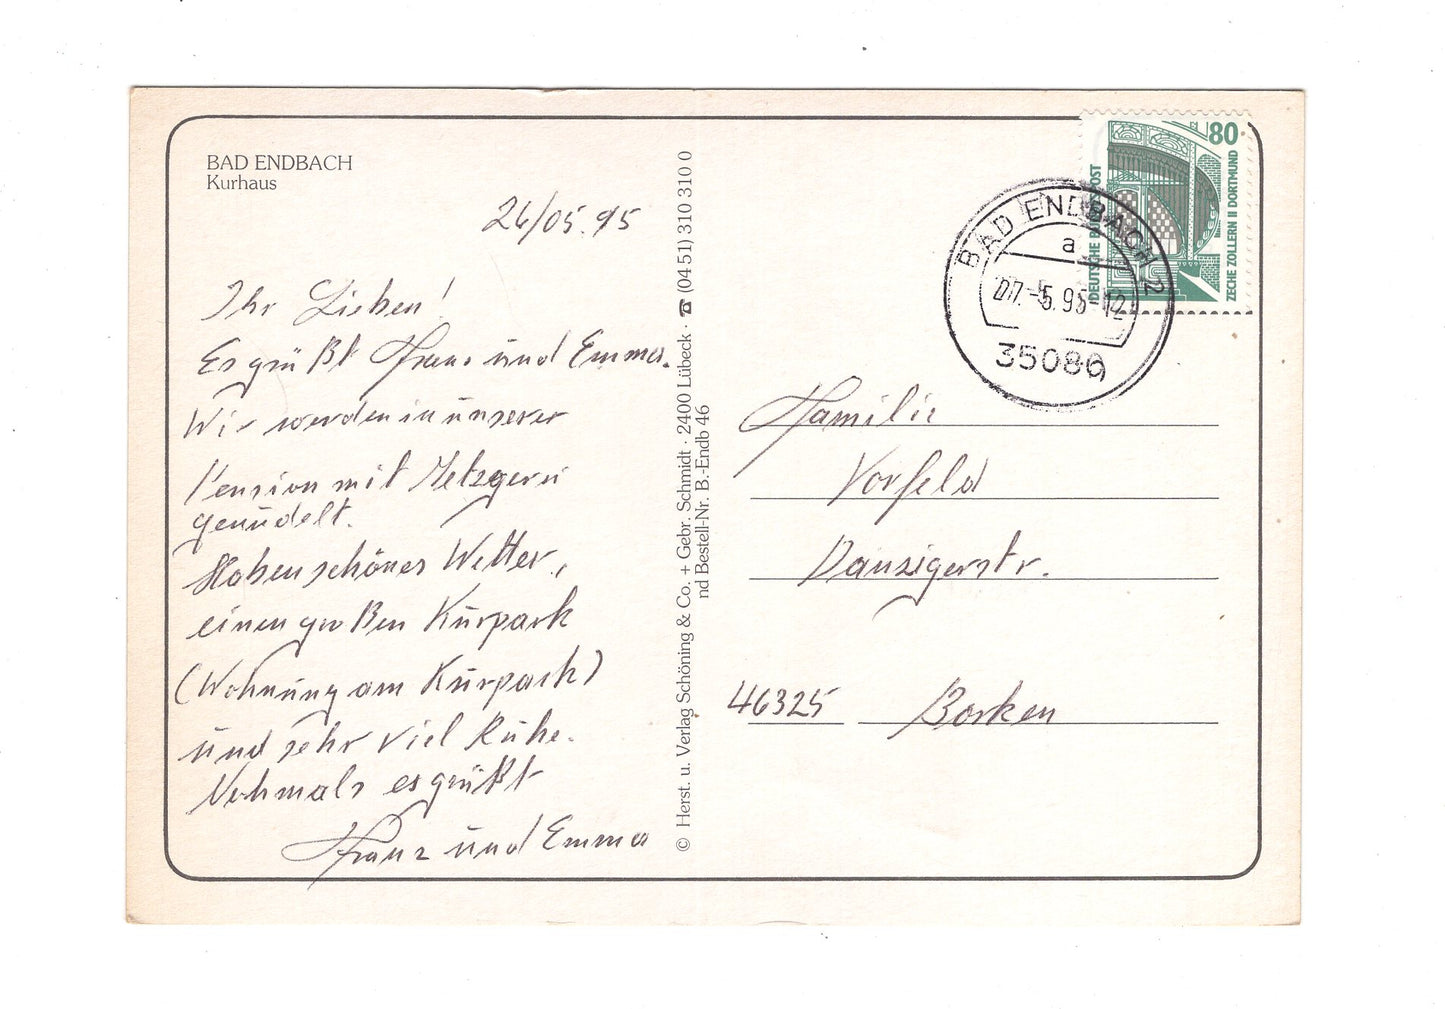 BAD ENDBACH
Kurhaus
26/05.95
Ihr Lieben!
Es grüßt Franz und Emma.
Wir werden in unserer
Pension mit Metzgerei
genudelt.
Haben schönes Wetter,
einen großen Kurpark
(Wohnung am Kurpark)
und sehr viel Ruhe.
Nochmals es grüßt
Franz und Emma
© Herst. u. Verlag Schöning & Co. + Gebr. Schmidt · 2400 Lübeck · ☎ (04 51) 310 310 0
nd Bestell-Nr. B.-Endb 46
80
DEUTSCHE BUNDESPOST
ZECHE ZOLLERN II DORTMUND
BAD ENDBACH 2
a
27.-5.95-12
35080
Familie
Vorfeld
Danzigerstr.
46325 Borken